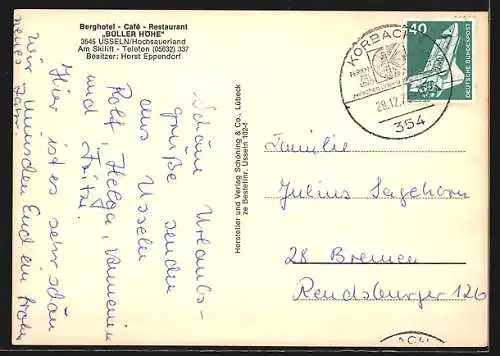 Berghotel - Café - Restaurant
„BOLLER HÖHE"
3545 USSELN/Hochsauerland
Am Skilift - Telefon (05632) 337
Besitzer: Horst Eppendorf
Schöne Urlaubs-
grüße senden
aus Usseln
Rolf, Helga,
und Fritz.
Hier ist es sehr schön
Wir wünschen Euch ein frohes
neues Jahr.
Hersteller und Verlag Schöning & Co., Lübeck
ze Bestellnr. Usseln 102-f
KORBACH
28.12.7
354
40
DEUTSCHE BUNDESPOST
Familie
Julius Sagehorn
28 Bremen
Rendsburger 126